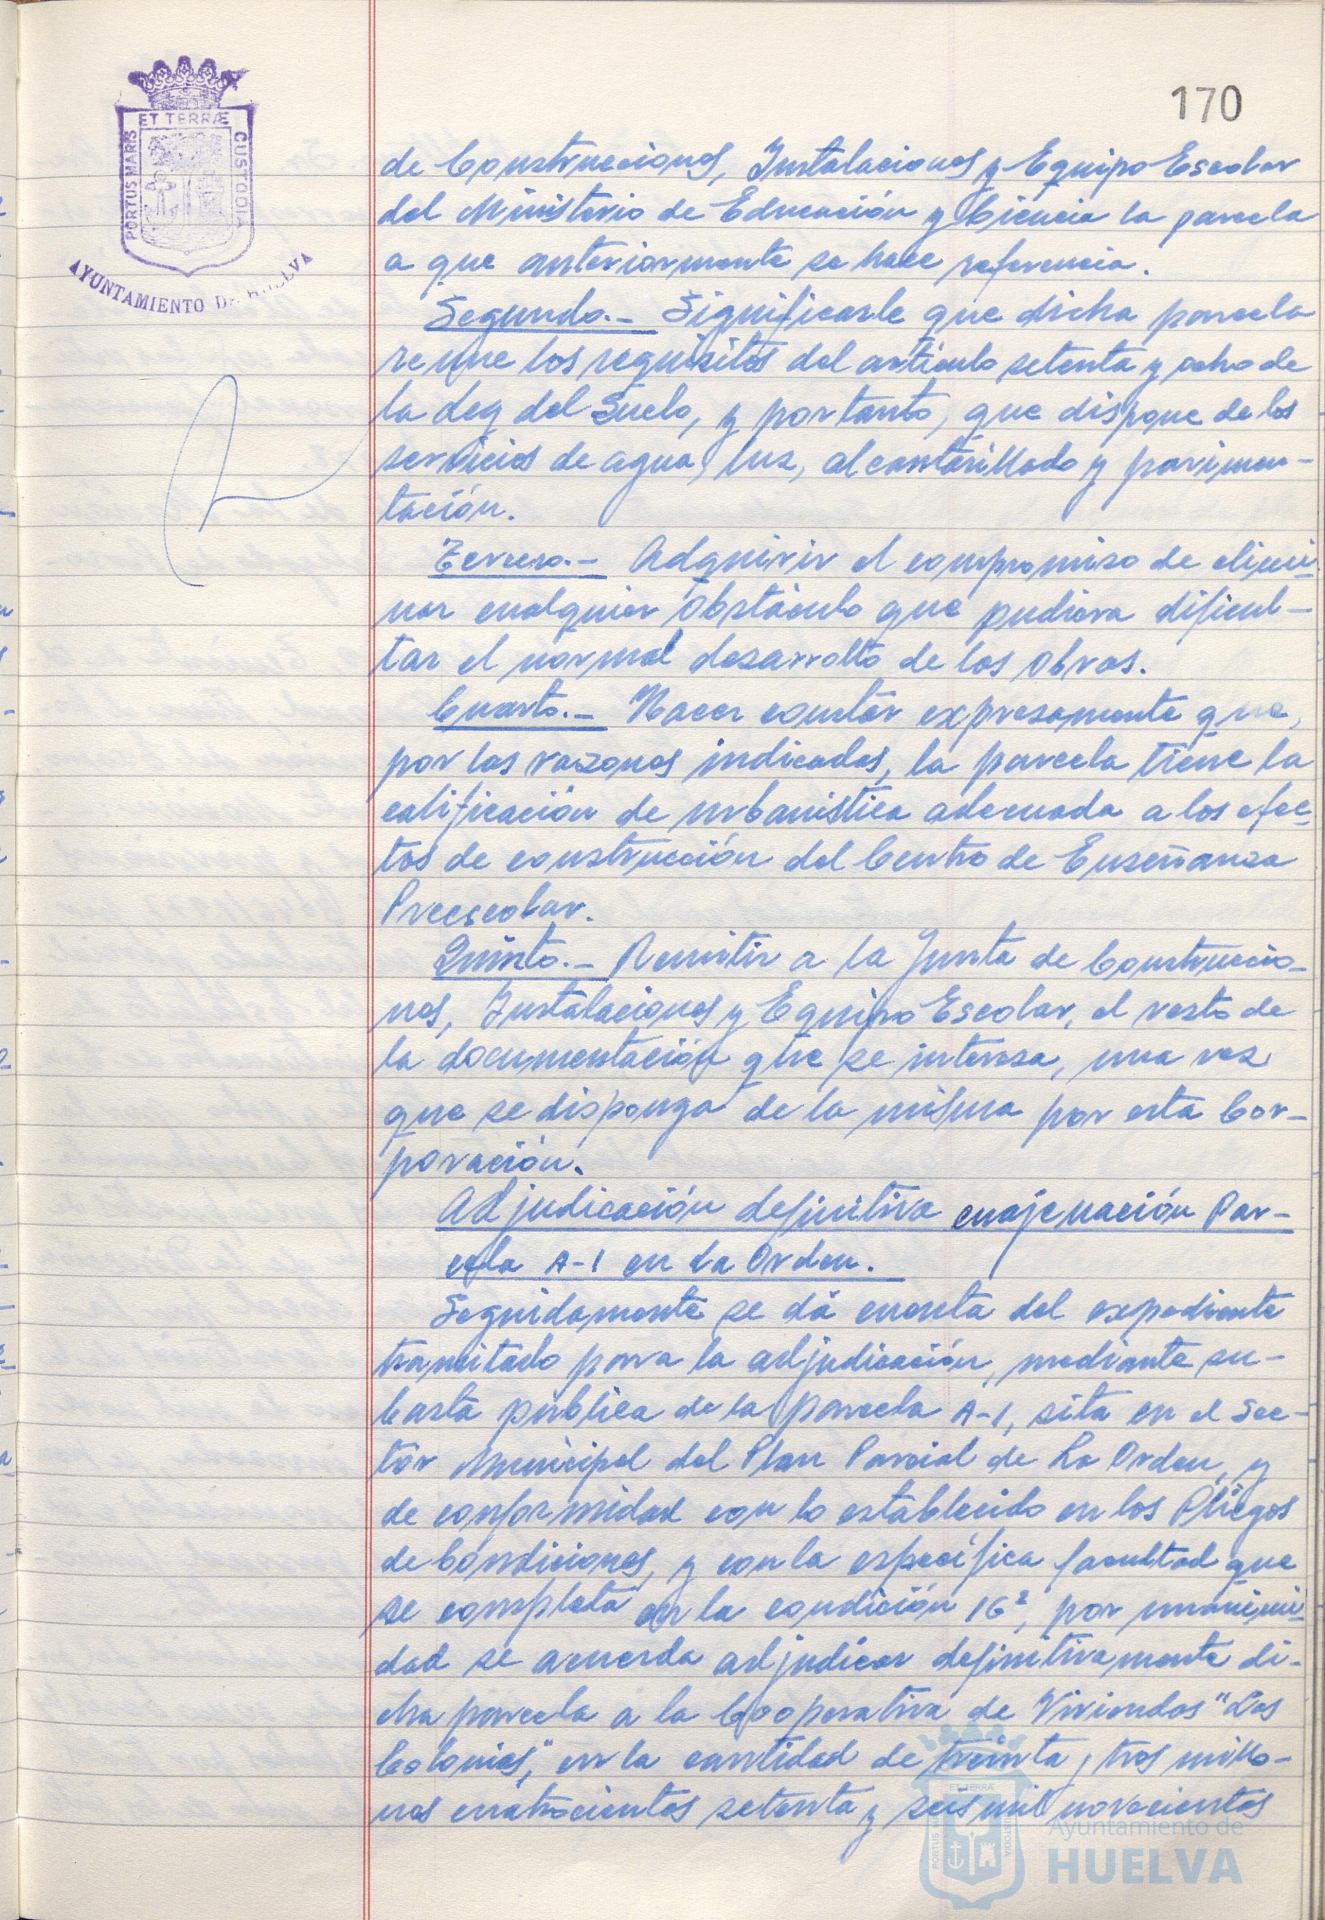 170
ET TERRÆ
PORTUS MARIS
CUSTODIA
AYUNTAMIENTO DE HUELVA
de Construcciones, Instalaciones y Equipo Escolar
del Ministerio de Educación y Ciencia la parcela
a que anteriormente se hace referencia.
Segundo.- Significarle que dicha parcela
reune los requisitos del artículo setenta y ocho de
la Ley del Suelo, y por tanto, que dispone de los
servicios de agua, luz, alcantarillado y pavimen-
tación.
Tercero.- Adquirir el compromiso de elimi-
nar cualquier obstáculo que pudiera dificul-
tar el normal desarrollo de las obras.
Cuarto.- Hacer constar expresamente que,
por las razones indicadas, la parcela tiene la
calificación de urbanística adecuada a los efec-
tos de construcción del Centro de Enseñanza
Preescolar.
Quinto.- Remitir a la Junta de Construccio-
nes, Instalaciones y Equipo Escolar, el resto de
la documentación que se interesa, una vez
que se disponga de la misma por esta Cor-
poración.
Adjudicación definitiva enajenación Par-
cela A-1 en La Orden.
Seguidamente se dá cuenta del expediente
tramitado para la adjudicación, mediante su-
basta pública de la parcela A-1, sita en el Sec-
tor Municipal del Plan Parcial de La Orden, y
de conformidad con lo establecido en los Pliegos
de Condiciones, y con la específica facultad que
se completa en la condición 16ª, por unanimi-
dad se acuerda adjudicar definitivamente di-
cha parcela a la Cooperativa de Viviendas "Las
Colonias", en la cantidad de treinta y tres millo-
nes cuatrocientas setenta y seis mil novecientas
ET TERRÆ
PORTUS MARIS
CUSTODIA
Ayuntamiento de
HUELVA